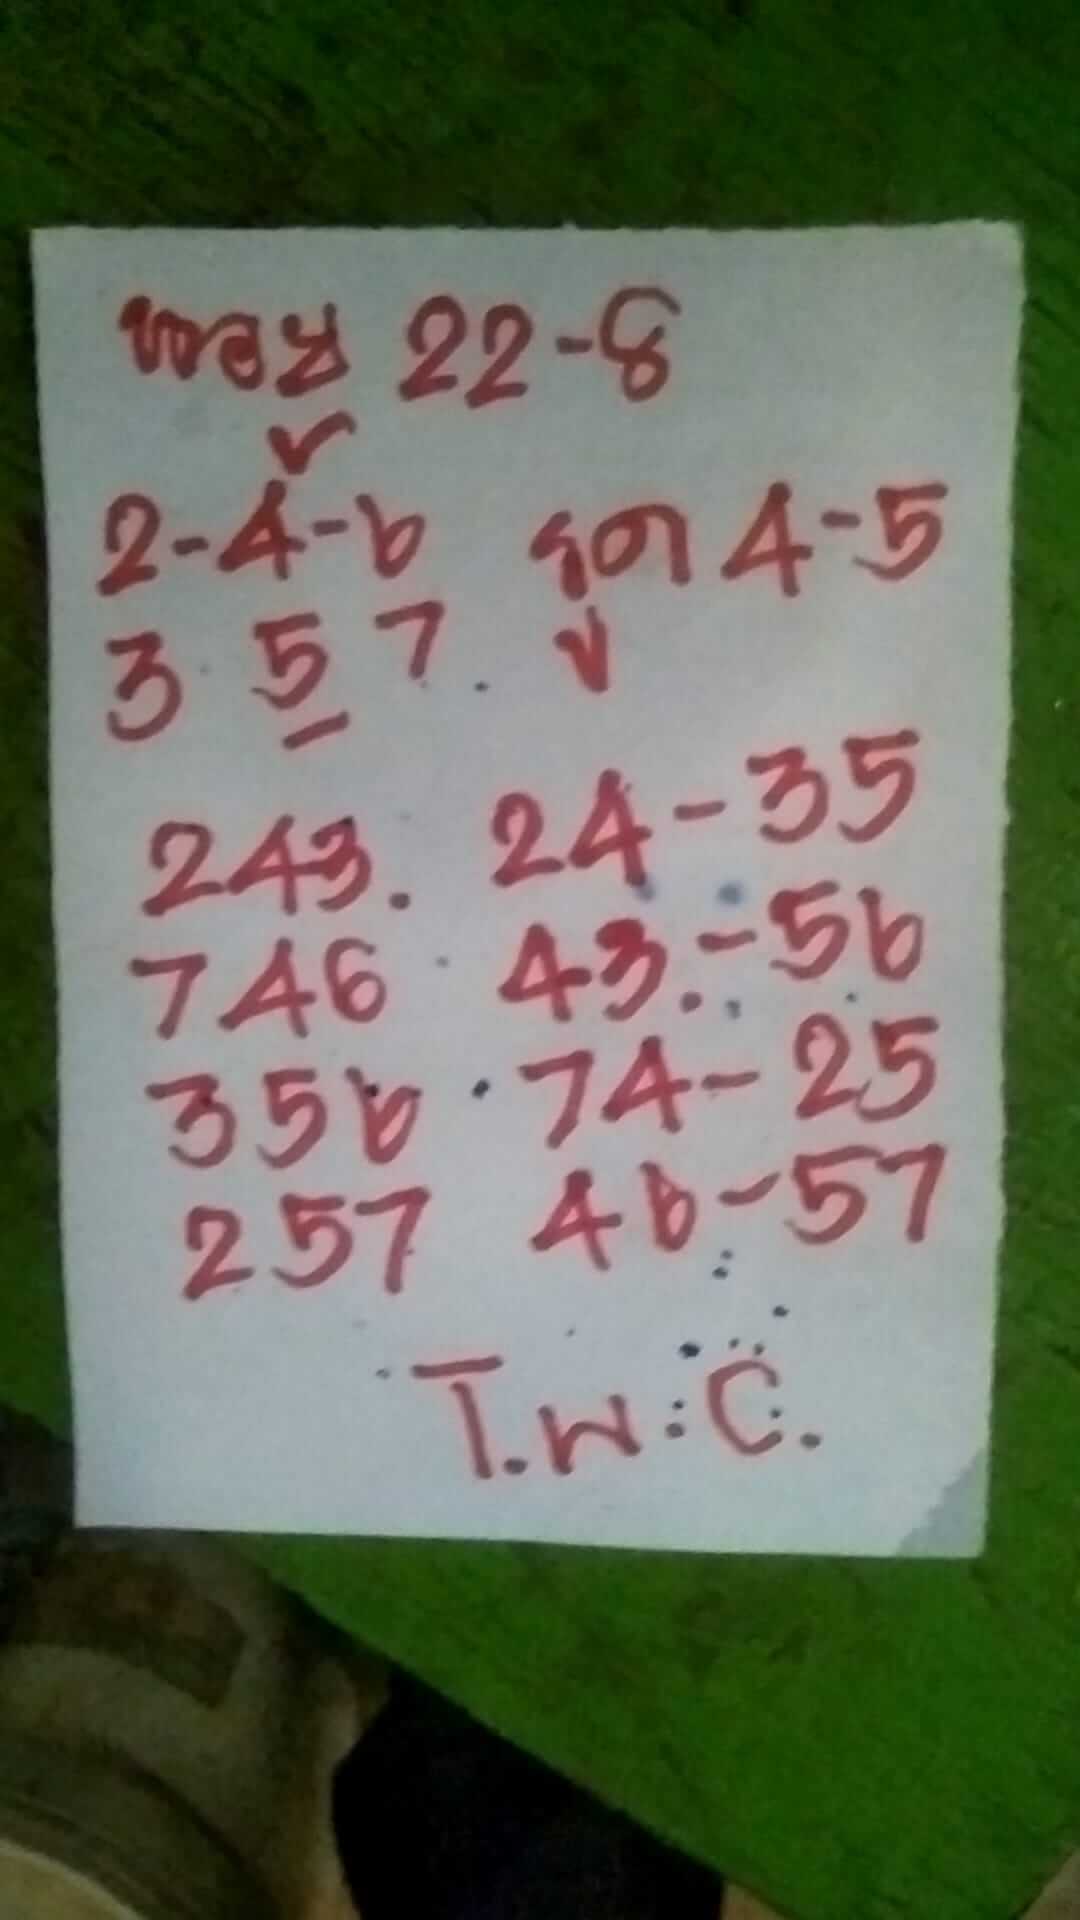 หอย 22-8
2-4-6 รูด 4-5
3 5 7
243. 24-35
746 43-56
356 74-25
257 46-57